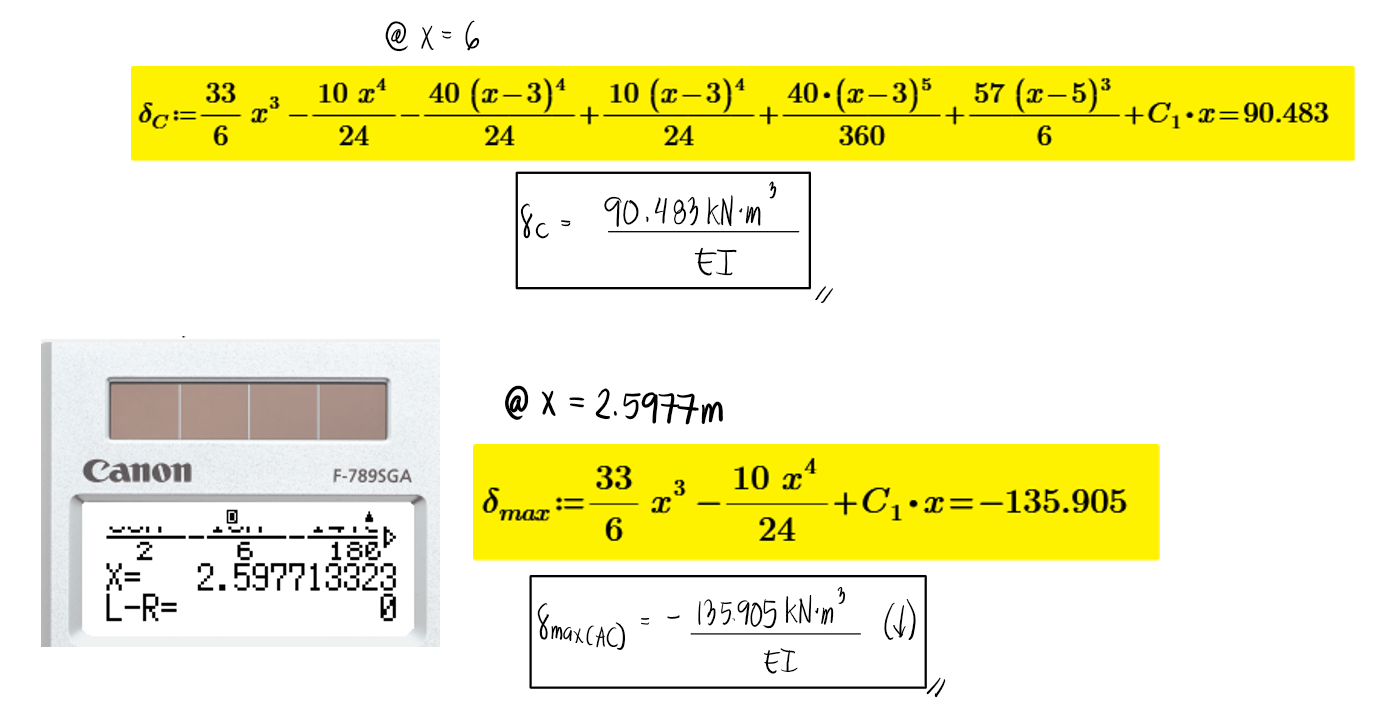 @ x = 6
δ_C := 33/6 x³ − 10 x⁴/24 − 40 (x−3)⁴/24 + 10 (x−3)⁴/24 + 40•(x−3)⁵/360 + 57 (x−5)³/6 + C₁•x = 90.483
δ_C = 90.483 kN·m³/EI
Canon
F-789SGA
2 6 180
X= 2.597713323
L-R= 0
@ x = 2.5977m
δ_max := 33/6 x³ − 10 x⁴/24 + C₁•x = −135.905
δ_max(AC) = − 135.905 kN·m³/EI (↓)